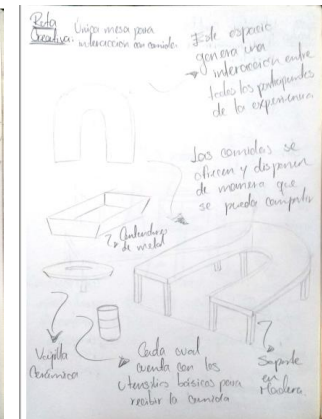 Ruta Única mesa para
Creativa: interacción con comida.
Este espacio
genera una
interacción entre
todos los participantes
de la experiencia
Las comidas se
ofrecen y disponen
de manera que
se pueda compartir
Contenedores
de metal
Vajilla
Cerámica
Cada cual
cuenta con los
utensilios básicos para
recibir la comida
Soporte
en
Madera